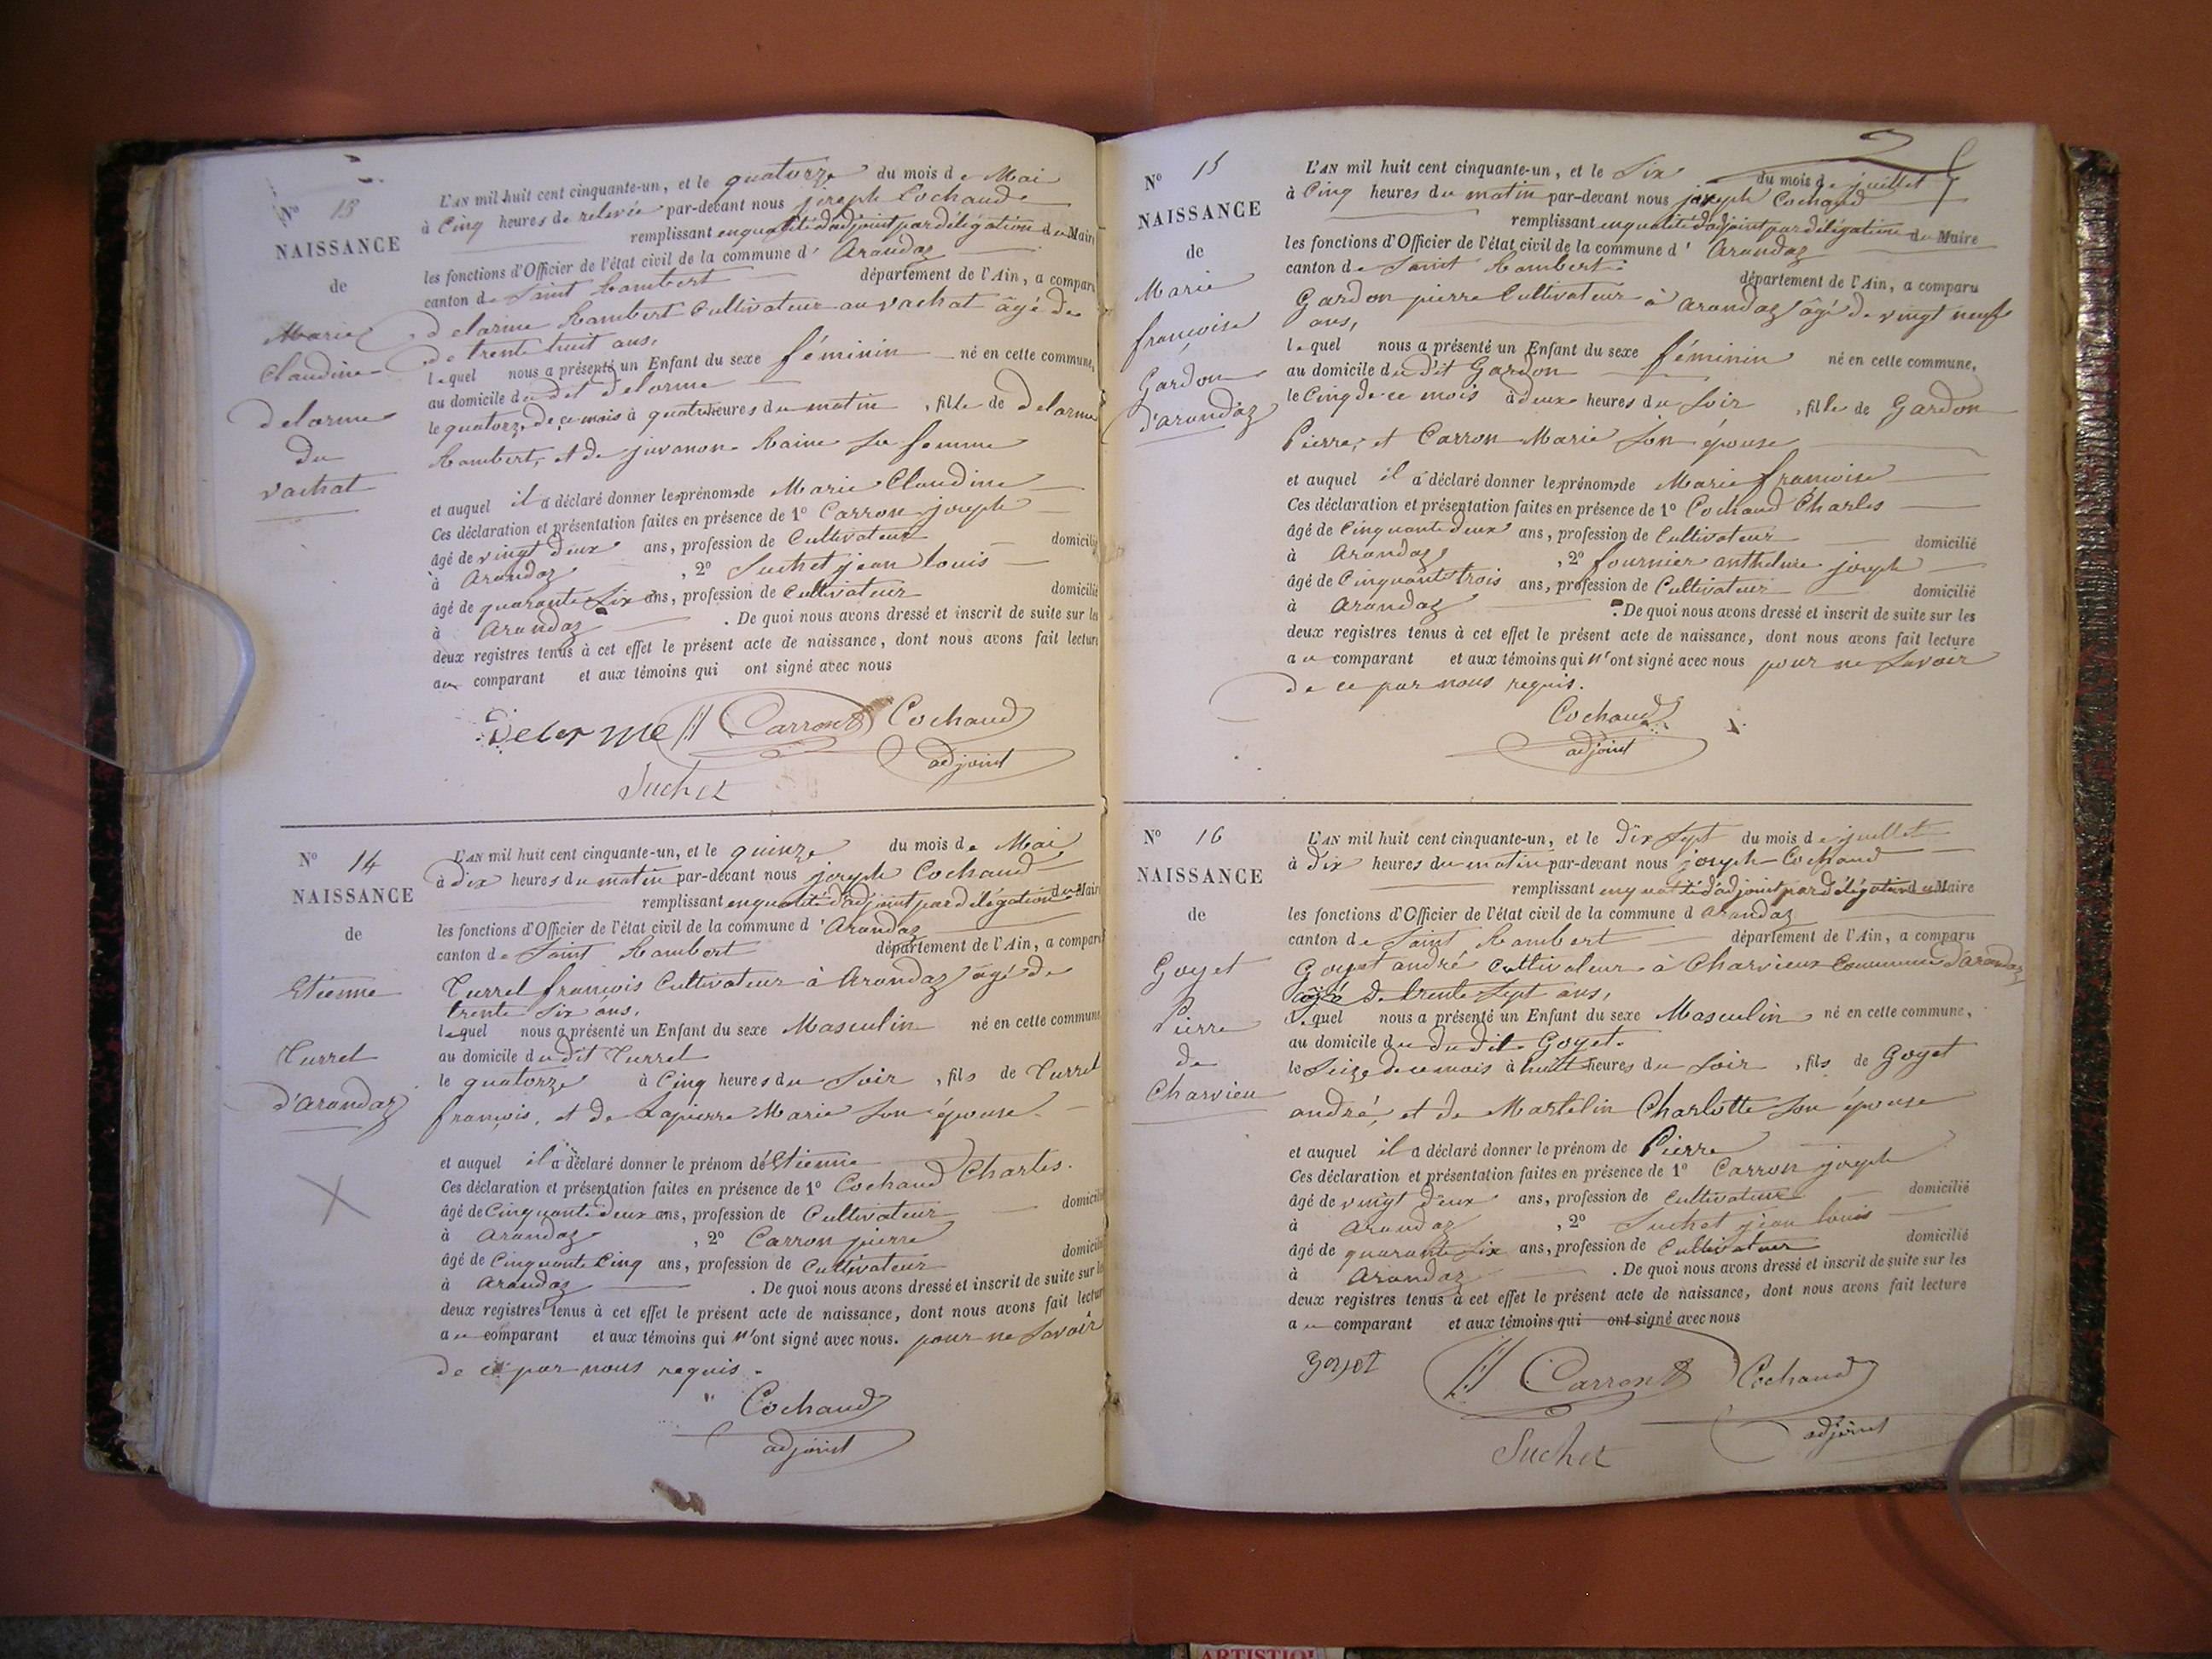 N° 13
NAISSANCE
de
Marie
Claudine
Delorme
du
vachat
L'AN mil huit cent cinquante-un, et le quatorze du mois de Mai
à Cinq heures de relevée par-devant nous joseph Cochaud
remplissant en qualité d'adjoint par délégation du Maire
les fonctions d'Officier de l'état civil de la commune d'Arandaz
canton de Saint Rambert département de l'Ain, a comparu
delorme Rambert Cultivateur au vachat âgé de
de trente huit ans,
lequel nous a présenté un Enfant du sexe féminin né en cette commune,
au domicile du dit delorme
le quatorze de ce mois à quatre heures du matin, fille de Delorme
Rambert, et de juvanon Reine sa femme
et auquel il a déclaré donner les prénoms de Marie Claudine
Ces déclaration et présentation faites en présence de 1° Carron joseph
âgé de vingt deux ans, profession de Cultivateur domicilié
à Arandaz, 2° Suchet jean louis
âgé de quarante Six ans, profession de Cultivateur domicilié
à Arandaz. De quoi nous avons dressé et inscrit de suite sur les
deux registres tenus à cet effet le présent acte de naissance, dont nous avons fait lecture
au comparant et aux témoins qui ont signé avec nous
Delorme Carron Cochaud
adjoint
Suchet
N° 14
NAISSANCE
de
Etienne
Turrel
d'Arandaz
L'AN mil huit cent cinquante-un, et le quinze du mois de Mai
à dix heures du matin par-devant nous joseph Cochaud
remplissant en qualité d'adjoint par délégation du Maire
les fonctions d'Officier de l'état civil de la commune d'Arandaz
canton de Saint Rambert département de l'Ain, a comparu
Turrel françois Cultivateur à Arandaz âgé de
trente Six ans,
lequel nous a présenté un Enfant du sexe Masculin né en cette commune
au domicile du dit Turrel
le quatorze à Cinq heures du Soir, fils de Turrel
françois, et de Lapierre Marie Son épouse
et auquel il a déclaré donner le prénom de Etienne
Ces déclaration et présentation faites en présence de 1° Cochaud Charles.
âgé de Cinquante deux ans, profession de Cultivateur domicilié
à Arandaz, 2° Carron pierre
âgé de Cinquante Cinq ans, profession de Cultivateur domicilié
à Arandaz. De quoi nous avons dressé et inscrit de suite sur les
deux registres tenus à cet effet le présent acte de naissance, dont nous avons fait lecture
au comparant et aux témoins qui n'ont signé avec nous. pour ne Savoir
de ce par nous requis.
Cochaud
adjoint
N° 15
NAISSANCE
de
Marie
françoise
Gardon
d'arandaz
L'AN mil huit cent cinquante-un, et le Six du mois de juillet
à Cinq heures du matin par-devant nous joseph Cochaud
remplissant en qualité d'adjoint par délégation du Maire
les fonctions d'Officier de l'état civil de la commune d'Arandaz
canton de Saint Rambert département de l'Ain, a comparu
Gardon pierre Cultivateur à Arandaz âgé de vingt neuf
ans,
lequel nous a présenté un Enfant du sexe féminin né en cette commune,
au domicile du dit Gardon
le Cinq de ce mois à deux heures du Soir, fille de Gardon
Pierre, et Carron Marie Son épouse
et auquel il a déclaré donner les prénoms de Marie françoise
Ces déclaration et présentation faites en présence de 1° Cochaud Charles
âgé de Cinquante deux ans, profession de Cultivateur domicilié
à Arandaz, 2° fournier anthelme joseph
âgé de Cinquante trois ans, profession de Cultivateur domicilié
à Arandaz. De quoi nous avons dressé et inscrit de suite sur les
deux registres tenus à cet effet le présent acte de naissance, dont nous avons fait lecture
au comparant et aux témoins qui n'ont signé avec nous pour ne Savoir
de ce par nous requis.
Cochaud
adjoint
N° 16
NAISSANCE
de
Goyet
Pierre
de
Charvieu
L'AN mil huit cent cinquante-un, et le Dix Sept du mois de juillet
à Dix heures du matin par-devant nous joseph Cochaud
remplissant en qualité d'adjoint par délégation du Maire
les fonctions d'Officier de l'état civil de la commune d Arandaz
canton de Saint Rambert département de l'Ain, a comparu
Goyet andré Cultivateur à Charvieux Commune d'Arandaz
âgé de trente Sept ans,
Lequel nous a présenté un Enfant du sexe Masculin né en cette commune,
au domicile du dudit Goyet.
le Seize de ce mois à huit heures du Soir, fils de Goyet
andré, et de Martelin Charlotte Son épouse
et auquel il a déclaré donner le prénom de Pierre
Ces déclaration et présentation faites en présence de 1° Carron joseph
âgé de vingt deux ans, profession de Cultivateur domicilié
à Arandaz, 2° Suchet jean louis
âgé de quarante Six ans, profession de Cultivateur domicilié
à Arandaz. De quoi nous avons dressé et inscrit de suite sur les
deux registres tenus à cet effet le présent acte de naissance, dont nous avons fait lecture
au comparant et aux témoins qui ont signé avec nous
Goyet Carron Cochaud
adjoint
Suchet
ARTISTIQU